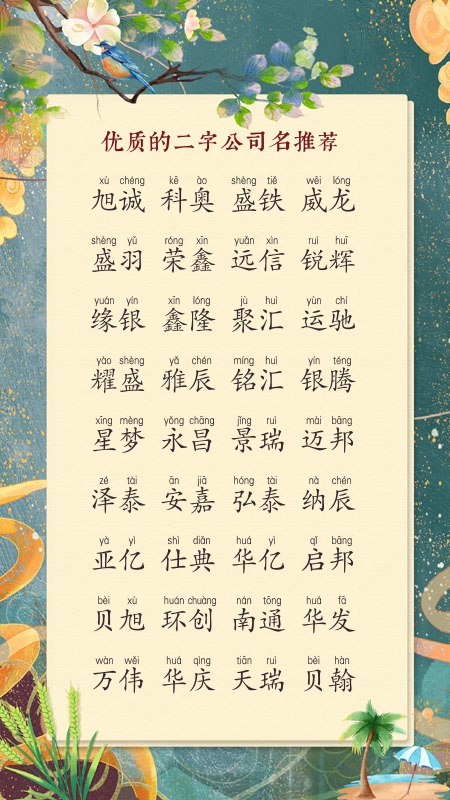 优质的二字公司名推荐
xù chéng kē ào shèng tiě wēi lóng
旭诚 科奥 盛铁 威龙
shèng yǔ róng xīn yuǎn xìn ruì huī
盛羽 荣鑫 远信 锐辉
yuán yín xīn lóng jù huì yùn chí
缘银 鑫隆 聚汇 运驰
yào shèng yǎ chén míng huì yín téng
耀盛 雅辰 铭汇 银腾
xīng mèng yǒng chāng jǐng ruì mài bāng
星梦 永昌 景瑞 迈邦
zé tài ān jiā hóng tài nà chén
泽泰 安嘉 弘泰 纳辰
yà yì shì diǎn huá yì qǐ bāng
亚亿 仕典 华亿 启邦
bèi xù huán chuàng nán tōng huá fā
贝旭 环创 南通 华发
wàn wěi huá qìng tiān ruì bèi hàn
万伟 华庆 天瑞 贝翰